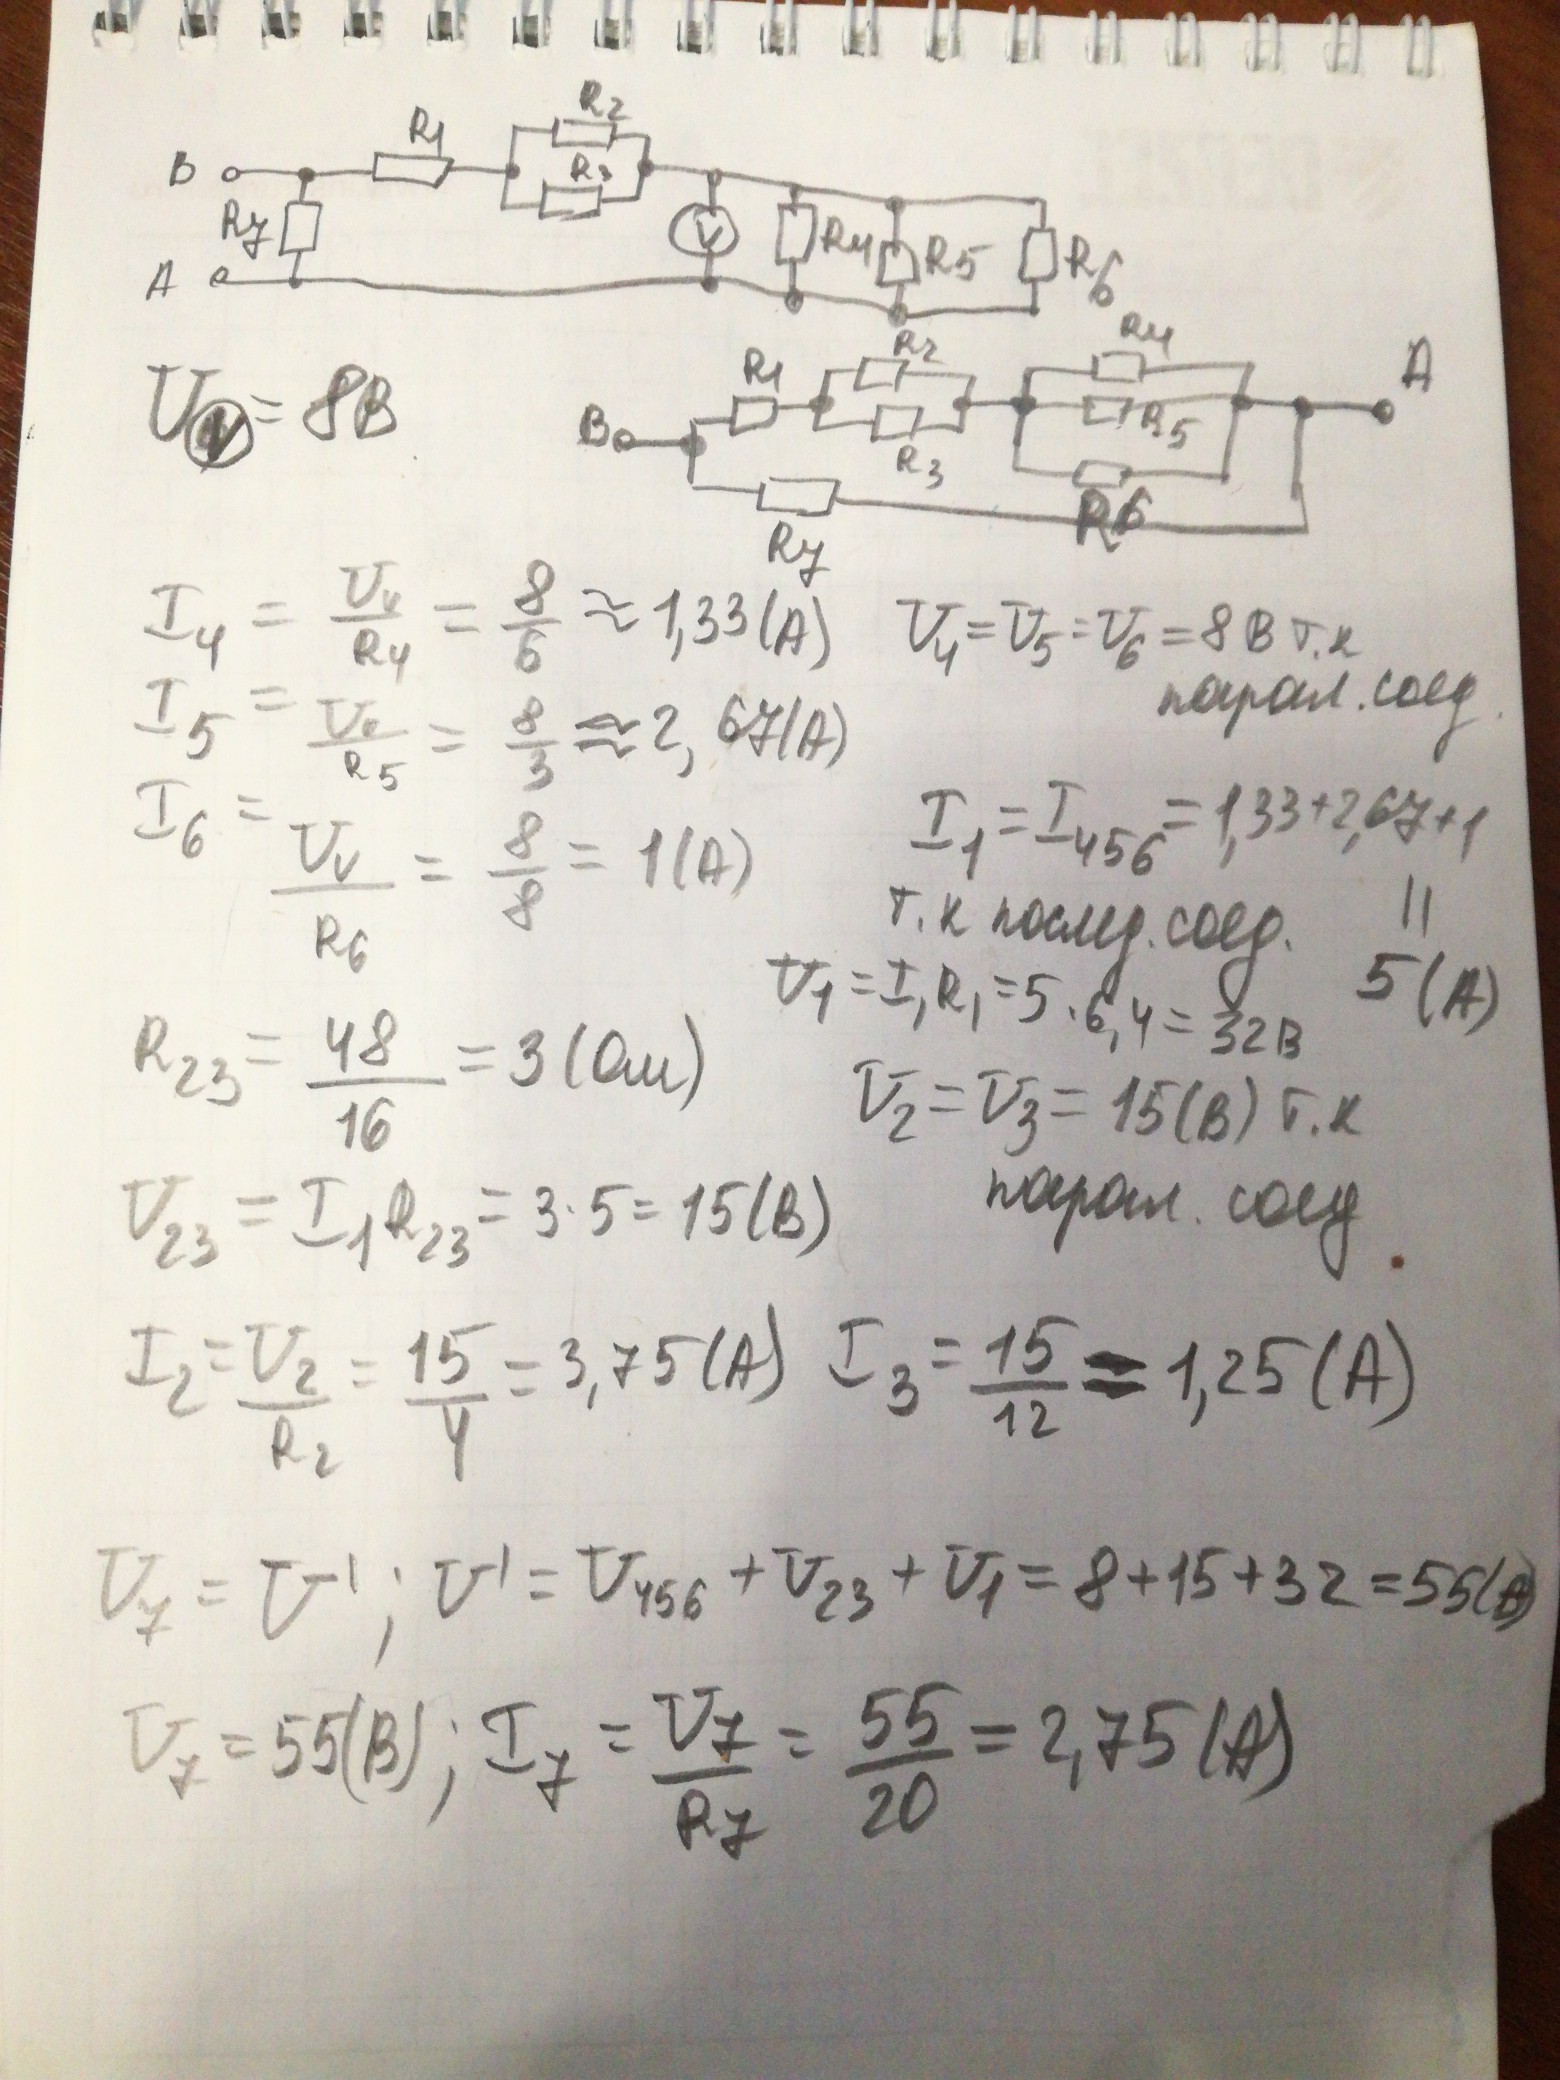 R2
R1
B
R3
R7
V
R4
R5
R6
A
R4
R2
A
R1
U_V = 8В
B
R5
R3
R6
R7
I₄ = U_V/R4 = 8/6 ≈ 1,33(А) U₄ = U₅ = U₆ = 8 В т.к
парал. соед.
I₅ = U_V/R5 = 8/3 ≈ 2,67(А)
I₆ = U_V/R6 = 8/8 = 1(А)
I₁ = I₄₅₆ = 1,33+2,67+1
т.к послед. соед. = 5(А)
U₁ = I₁R₁ = 5·6,4 = 32В
R₂₃ = 48/16 = 3(Ом)
U₂ = U₃ = 15(В) т.к
парал. соед
U₂₃ = I₁R₂₃ = 3·5 = 15(В)
I₂ = U₂/R₂ = 15/4 = 3,75(А) I₃ = 15/12 = 1,25(А)
U₇ = U'; U' = U₄₅₆ + U₂₃ + U₁ = 8+15+32 = 55(В)
U₇ = 55(В); I₇ = U₇/R7 = 55/20 = 2,75(А)